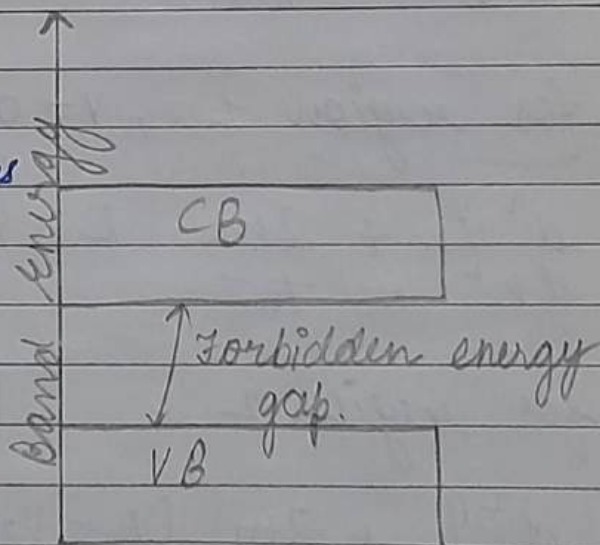 Band energy
s
CB
Forbidden energy
gap.
VB